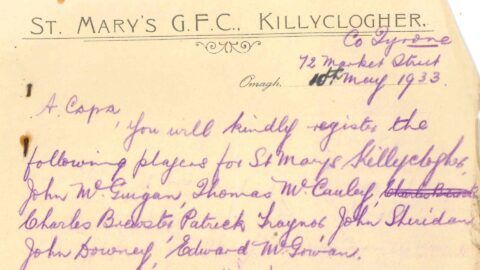 ST. MARY'S G.F.C., KILLYCLOGHER.
Co Tyrone
72 Market Street
Omagh. 10th May 1933
A Capa,
You will kindly register the
following players for St Marys Killyclogher,
John McGuigan, Thomas McCauley, Charles
Charles Brewster Patrick Traynor John Sheridan
John Downey, Edward McGowan.